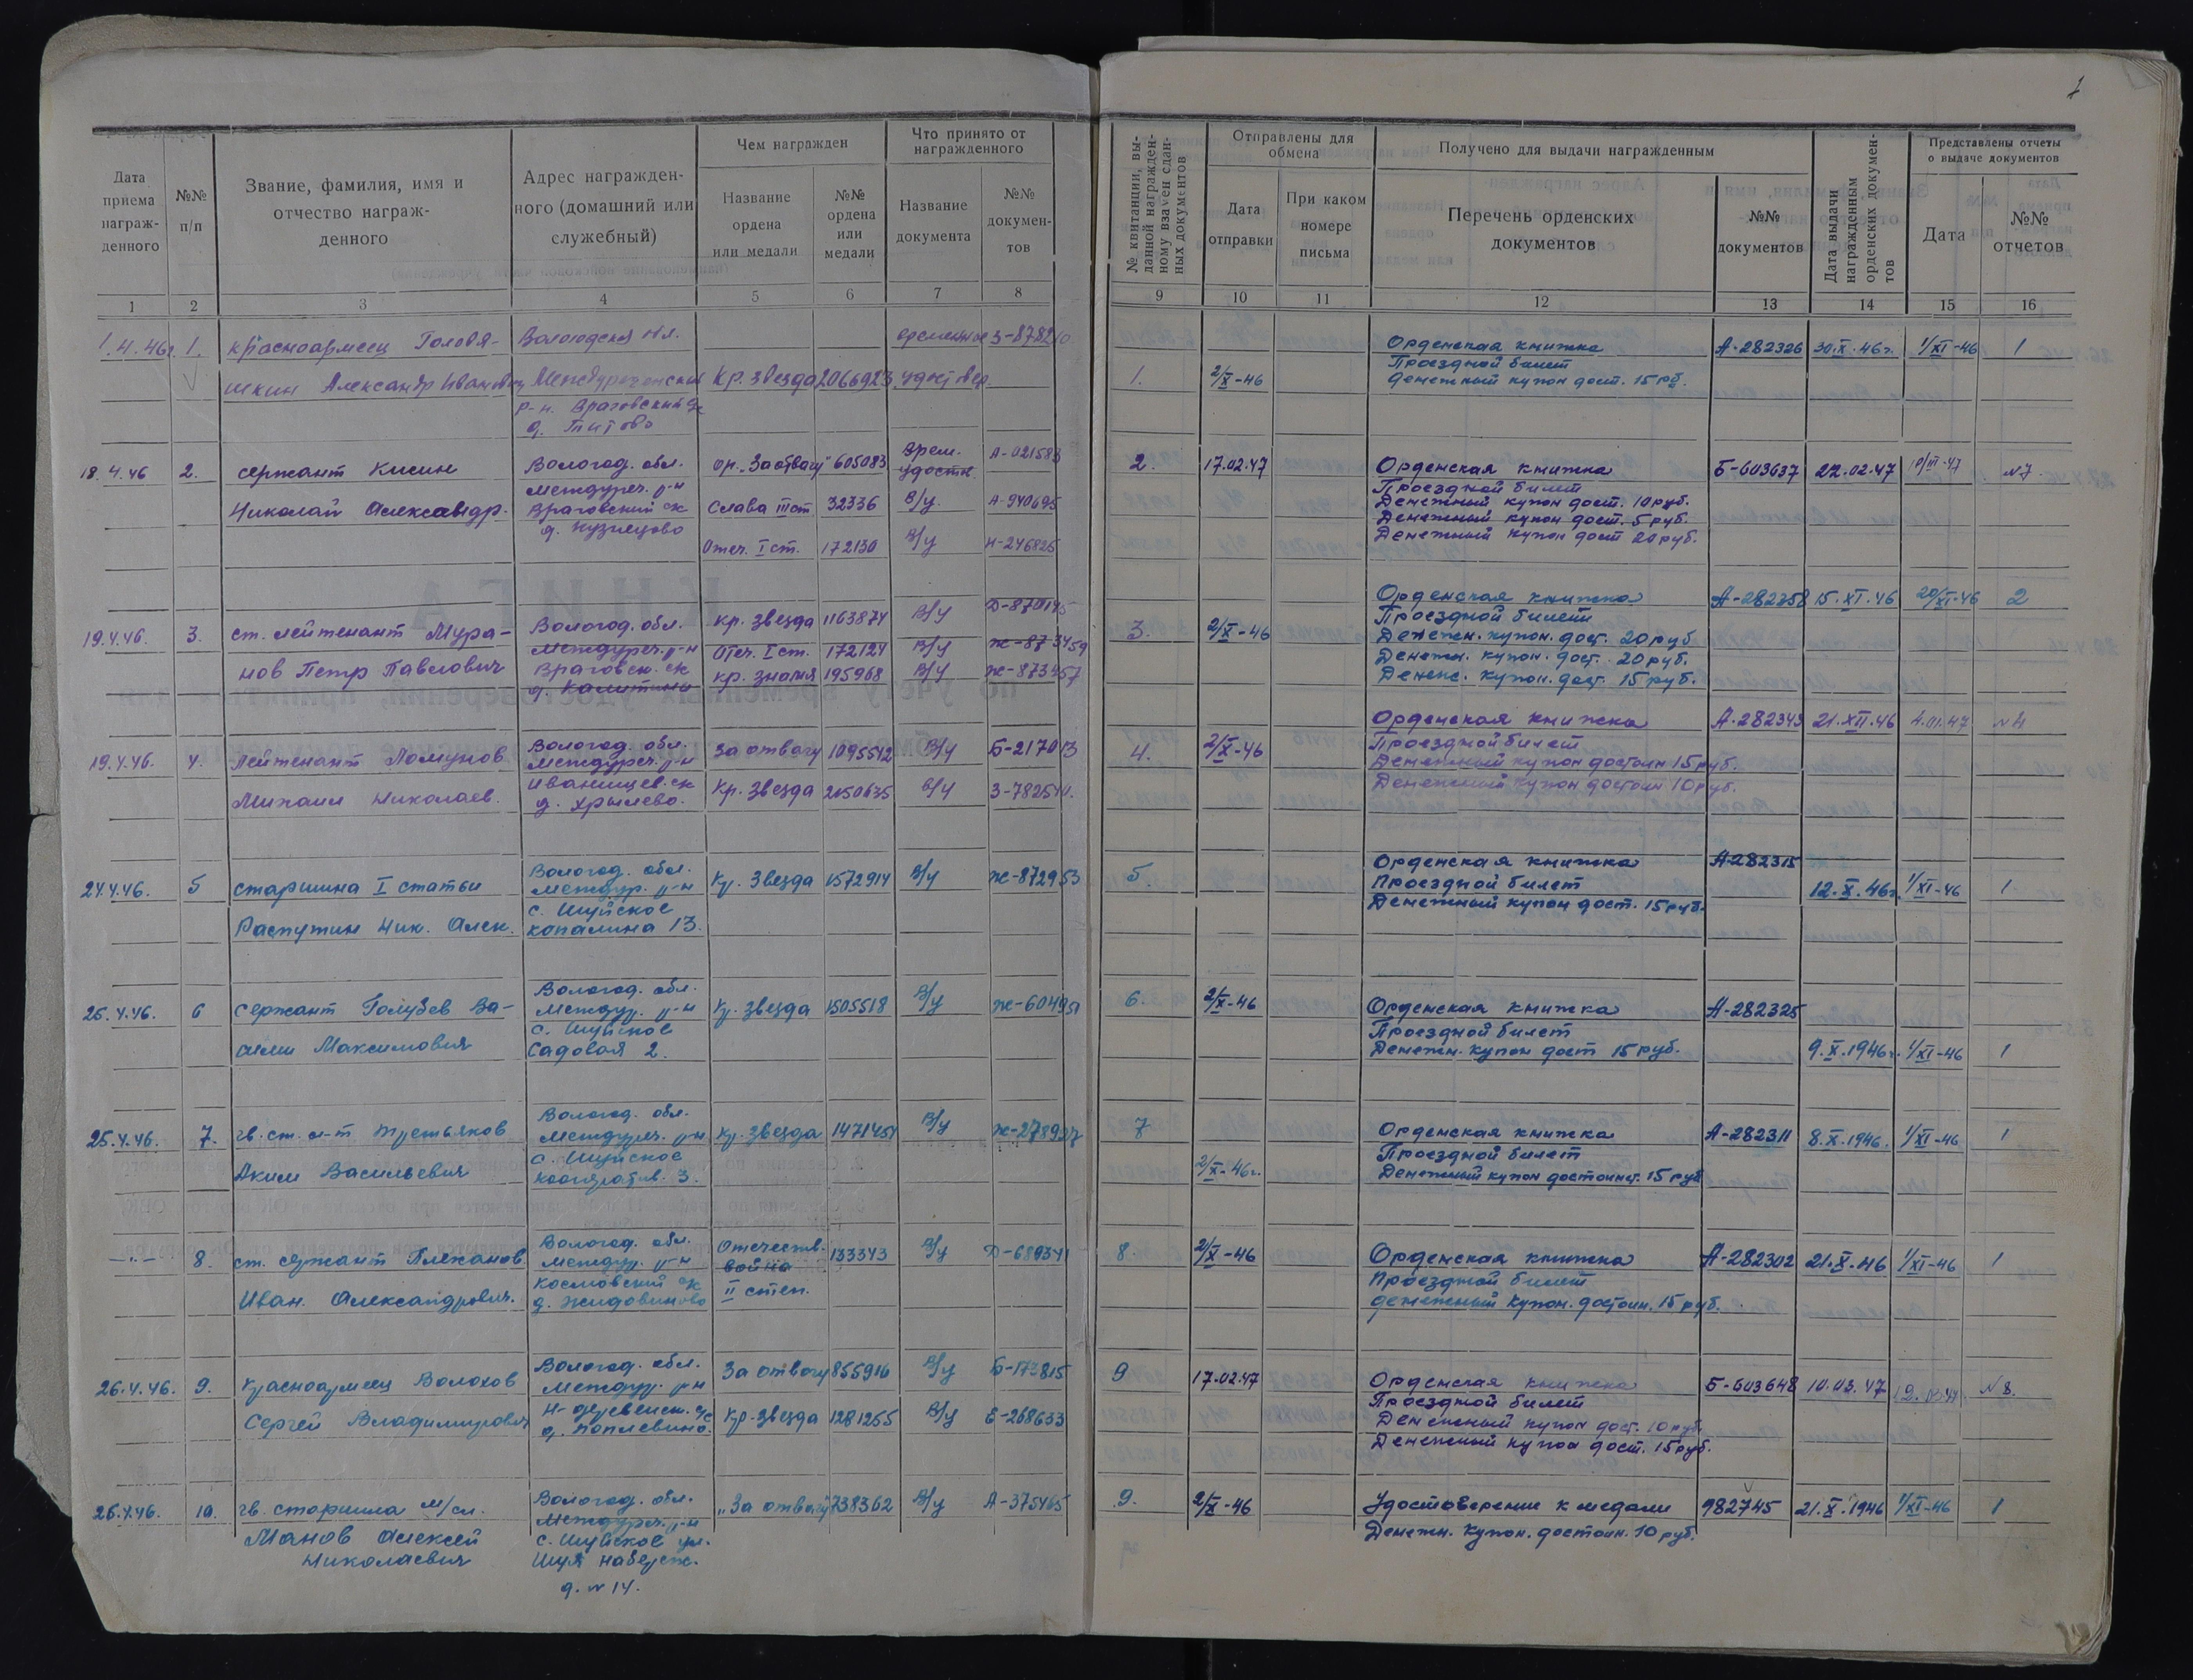 1
Дата приема награжденного
№№ п/п
Звание, фамилия, имя и отчество награжденного
Адрес награжденного (домашний или служебный)
Чем награжден
Название ордена или медали
№№ ордена или медали
Что принято от награжденного
Название документа
№№ документов
№ квитанции, выданной награжденному взамен сданных документов
Отправлены для обмена
Дата отправки
При каком номере письма
Получено для выдачи награжденным
Перечень орденских документов
№№ документов
Дата выдачи награжденным орденских документов
Представлены отчеты о выдаче документов
Дата
№№ отчетов
1 2 3 4 5 6 7 8 9 10 11 12 13 14 15 16
1. красноармеец Головя-
шкин Александр Иванович
Междуреченский
р-н. Враговский с/с
д. Титово
Кр. Звезда 2066923
1. 2/X-46
Орденская книжка А-282326 30.X.46г. 1/XI-46 1
Проездной билет
денежный купон дост. 15 рб.
18.4.46 2. сержант Кисин
Николай Александр.
Вологод. обл.
Междуреч. р-н
Враговский с/с
д. Кузнецово
ор. "За отвагу" 605083 Врем. удостн.
Слава III ст 32336 В/у. А-940695
Отеч. I ст. 172130 В/у Н-246825
2. 17.02.47
Орденская книжка Б-603637 22.02.47 №7
Проездной билет
Денежный купон дост. 10 руб.
Денежный купон дост. 5 руб.
Денежный купон дост 20 руб.
19.X.46. 3. ст. лейтенант Мура-
нов Петр Павлович
Вологод. обл.
Междуреч. р-н
Враговск. с/с
кр. звезда 1163874 В/у
Отеч. I ст. 172124 В/у Ж-873459
кр. знамя 195968 В/у Ж-873457
3. 2/X-46
Орденская книжка А-282358 15.XI.46 20/XI-46 2
Проездной билет
Денежн. купон. дост. 20 руб
Денежн. купон. дост. 20 руб.
Денеж. купон. дост. 15 руб.
19.X.46. 4. лейтенант Ломунов
Михаил Николаев.
Вологод. обл.
Междуреч. р-н
Иванищев. с/с
д. Хрылево.
За отвагу 1095542 В/у Б-217013
Кр. Звезда 2050635 В/у
4. 2/X-46
Орденская книжка А-282343 21.XII.46 4.01.47 №4
Проездной билет
Денежный купон достоин 15 руб.
Денежный купон достоин 10 руб.
24.X.46. 5 старшина I статьи
Распутин Ник. Алек.
Вологод. обл.
Междур. р-н
с. Шуйское
Копанина 13.
Кр. Звезда 1572914 В/у Ж-872953
5.
Орденская книжка А-282315
Проездной билет 12.X.46г. 1/XI-46 1
Денежный купон дост. 15 руб.
25.X.46. 6 Сержант Голубев Ва-
силий Максимович
Вологод. обл.
Междур. р-н
с. Шуйское
Садовая 2.
Кр. звезда 1505518 В/у
6. 2/X-46
Орденская книжка А-282325
Проездной билет
Денежн. купон дост 15 руб. 9.X.1946г. 1/XI-46 1
25.X.46. 7. гв. ст. л-т Третьяков
Аким Васильевич
Вологод. обл.
Междуреч. р-н
с. Шуйское
кооператив. 3.
Кр. звезда 1471454 В/у
7 2/X-46г.
Орденская книжка А-282311 8.X.1946. 1/XI-46 1
Проездной билет
Денежный купон достоинст. 15 руб
8. ст. сержант Плеханов
Иван. Александрович.
Вологод. обл.
Междур. р-н
Космовский с/с
д. Жидовиново
Отечеств. война 133343 В/у Д-689341
II степ.
8. 2/X-46
Орденская книжка А-282302 21.X.46 1/XI-46 1
Проездной билет
денежный купон. достоин. 15 руб.
26.X.46. 9. Красноармеец Волохов
Сергей Владимирович
Вологод. обл.
Междур. р-н
За отвагу 855916 В/у Б-173815
Кр. звезда 1281255 В/у Е-268633
9 17.02.47
Орденская книжка Б-603648 10.03.47 №8.
Проездной билет
Денежный купон дост. 10 руб.
Денежный купон дост. 15 руб.
26.X.46. 10. гв. старшина м/сл.
Манов Алексей
Николаевич
Вологод. обл.
Междуреч. р-н
с. Шуйское ул.
Шуя набереж.
д. № 14.
"За отвагу" 738362 В/у А-375465
9. 2/X-46
Удостоверение к медали 982745 21.X.1946 1/XI-46 1
Денежн. Купон. достоин. 10 руб.